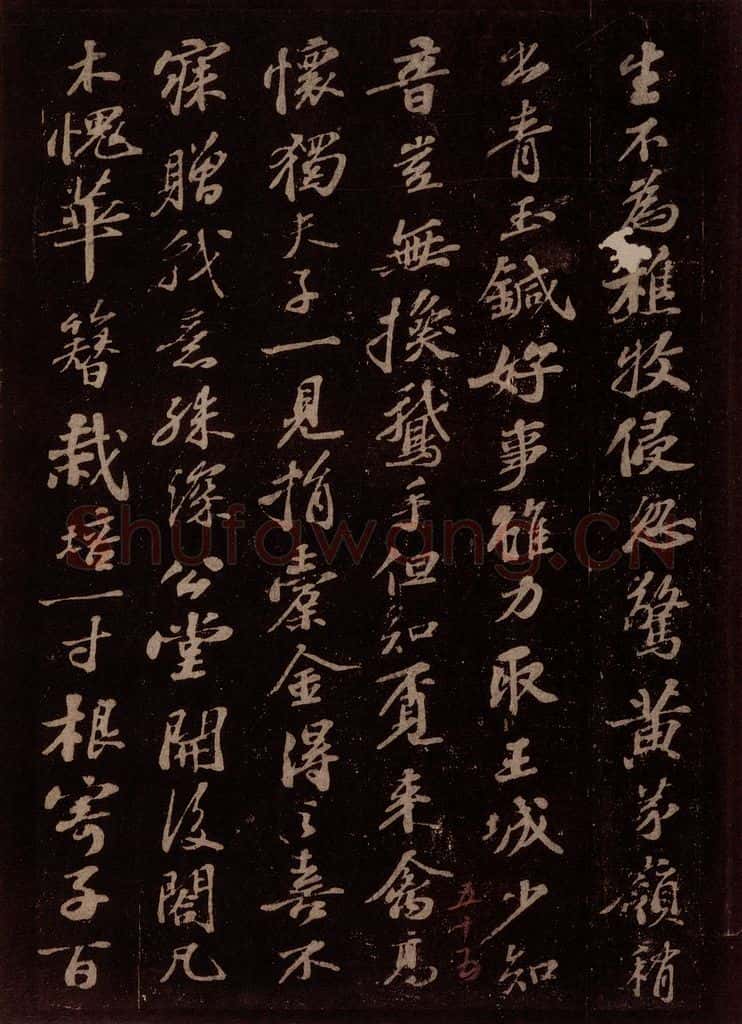 生不為樵牧侵忽驚黃茅嶺稍
出青玉鍼好事雖力取王城少知
音豈無換鵝手但知覓來禽高
懷獨夫子一見捐橐金得之喜不
寐贈我意殊深公堂開後閣凡
木愧華簪栽培一寸根寄子百
五十
Shufawang.CN